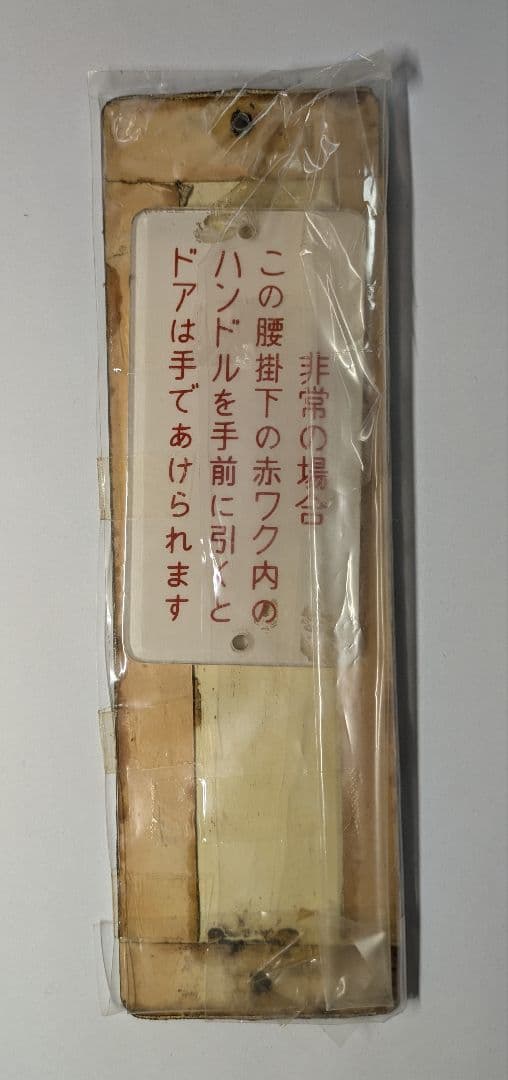 非常の場合
この腰掛下の赤ワク内の
ハンドルを手前に引くと
ドアは手であけられます